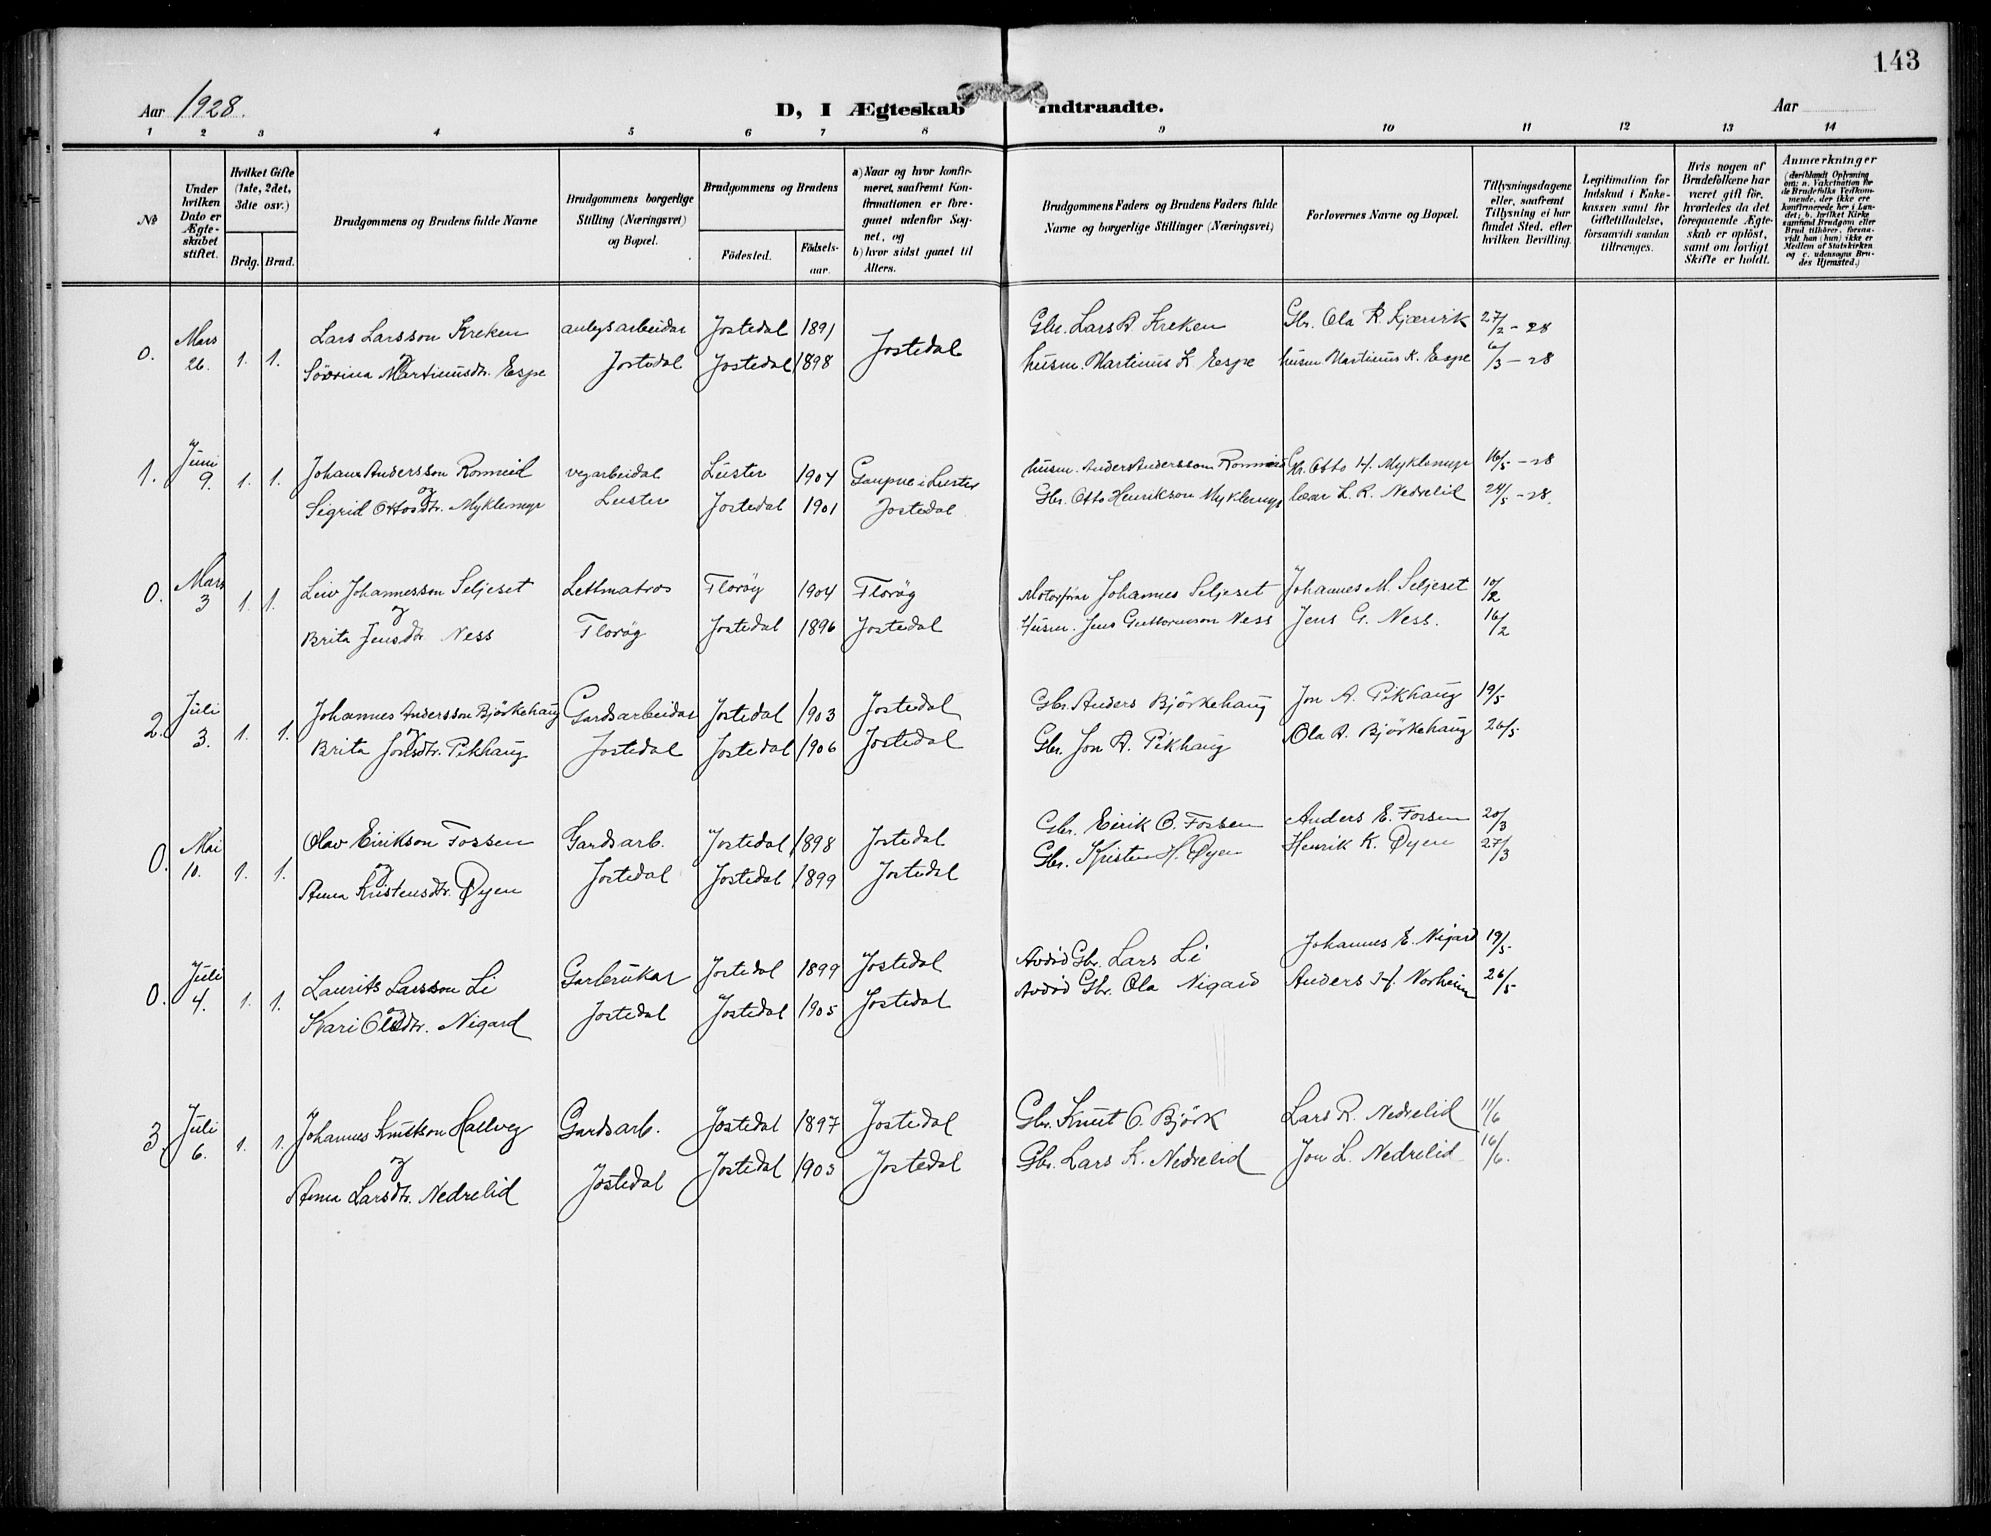 143
Aar 1928.
D, I Ægteskab Indtraadte.
Aar
1 2 3 4 5 6 7 8 9 10 11 12 13 14
No
Under hvilken Dato er Ægteskabet stiftet.
Hvilket Gifte (1ste, 2det, 3die osv.)
Brdg. Brud.
Brudgommens og Brudens fulde Navne
Brudgommens borgerlige Stilling (Næringsvei) og Bopæl.
Brudgommens og Brudens
Födested.
Födselsaar.
a) Naar og hvor konfirmeret, saafremt Konfirmationen er foregaaet udenfor Sognet, og
b) hvor sidst gaaet til Alters.
Brudgommens Faders og Brudens Faders fulde Navne og borgerlige Stillinger (Næringsvei)
Forlovernes Navne og Bopæl.
Tillysningsdagene eller, saafremt Tillysning ei har fundet Sted, efter hvilken Bevilling.
Legitimation for Indskud i Enkekassen samt for Giftetilladelse, forsaavidt saadan tiltrænges.
Hvis nogen af Brudefolkene har været gift för, hvorledes da det foregaaende Ægteskab er oplöst, samt om lovligt Skifte er holdt.
Anmærkninger
(deriblandt Oplysning om: a. Vakcination for de Brudefolks Vedkommende, der ikke ere konfirmerede her i Landet; b. hvilket Kirkesamfund Brudgom eller Brud tilhörer, forsaavidt han (hun) ikke er Medlem af Statskirken og c. udensogns Brudes Hjemsted.)
0. Mars 26. 1. 1. Lars Larsson Kreken anlegsarbeidar Jostedal 1891 Jostedal Gbr. Lars A Kreken Gbr. Ola R. Kjærvik 27/2 - 28
og
Søvrina Martinusdtr. Espe Jostedal Jostedal 1898 husm. Martinus K. Espe husm Martinus K. Espe 6/3 - 28
1. Juni 9. 1. 1. Johan Andersson Ronneid vegarbeidar Luster 1904 Gaupne i Luster husm. Anders Andersson Ronneid Gbr. Otto H. Myklemyr 16/5 - 28
og
Sigrid Ottosdtr. Myklemyr Luster Jostedal 1901 Jostedal Gbr. Otto Henrikson Myklemyr lærar L. R. Nedrelid 24/5 - 28.
0. Mars 3 1. 1. Leiv Johannesson Seljeset Lettmatros Florøy 1904 Florøy Johannes Seljeset Johannes M. Seljeset 10/2
og
Brita Jensdtr Ness Florøy Jostedal 1896 Jostedal Husm. Jens Guttormson Ness Jens G. Ness. 16/2
2. Juli 3. 1. 1. Johannes Andersson Bjørkehaug Gardsarbeidar Jostedal 1903 Jostedal Gbr. Anders Bjørkehaug Jon A. Pikhaug 19/5
og
Brita Jonsdtr. Pikhaug Jostedal Jostedal 1906 Jostedal Gbr. Jon A. Pikhaug Ola A. Bjørkehaug 26/5
0. Mai 10. 1. 1. Olav Eirikson Fossen Gardsarb. Jostedal 1898 Jostedal Gbr. Eirik O. Fossen Anders E. Fossen 20/3
og
Anna Kristensdtr. Øyen Jostedal Jostedal 1899 Jostedal Gbr. Kristen H. Øyen Henrik K. Øyen 27/3
0. Juli 4. 1. 1. Laurits Larsson Li Garbrukar Jostedal 1899 Jostedal Avdød Gbr. Lars Li Johannes E. Nigard 19/5
og
Kari Olsdtr. Nigard Jostedal Jostedal 1905 Jostedal Avdød Gbr. Ola Nigard Anders H. Norheim 26/5
3. Juli 6. 1. 1. Johannes Knutson Hellveg Gardsarb. Jostedal 1897 Jostedal Gbr. Knut O. Bjørk Lars R. Nedrelid 11/6
og
Anna Larsdtr. Nedrelid Jostedal Jostedal 1903 Jostedal Gbr. Lars K. Nedrelid Jon L. Nedrelid 16/6.